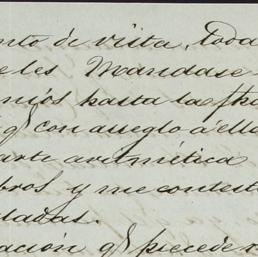 nto de vista, toda
eles Mandase
nios hasta la fha
q̃ con arreglo á ello
arte aritmética
bros, y me contest
ladas.
ación q̃ precede